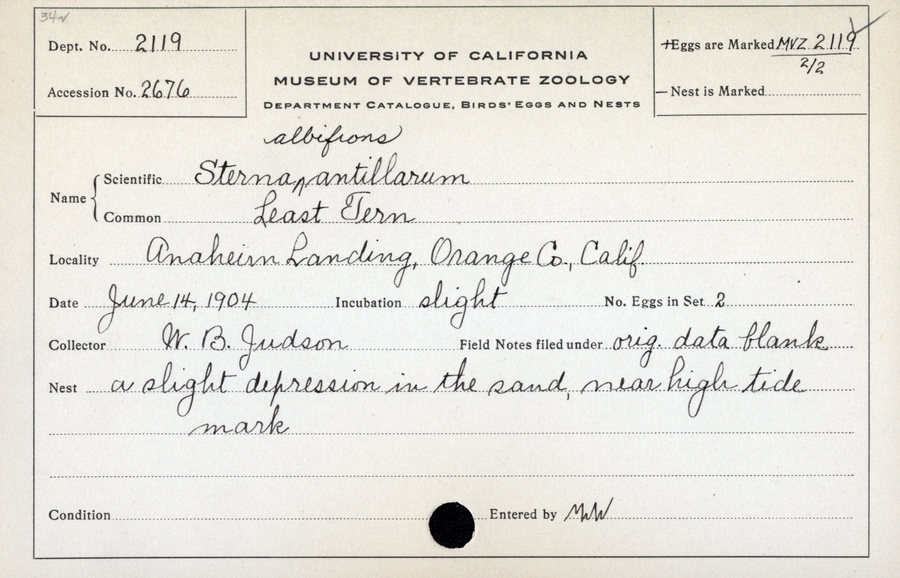 Dept. No. 2119
Accession No. 2676
UNIVERSITY OF CALIFORNIA
MUSEUM OF VERTEBRATE ZOOLOGY
DEPARTMENT CATALOGUE, BIRDS' EGGS AND NESTS
+Eggs are Marked MVZ 2119
2/2
— Nest is Marked
albifrons
Name Scientific Sterna ^ antillarum
Common Least Tern
Locality Anaheim Landing, Orange Co., Calif.
Date June 14, 1904 Incubation slight No. Eggs in Set 2
Collector W. B. Judson Field Notes filed under orig. data blank
Nest a slight depression in the sand, near high tide
mark
Condition Entered by